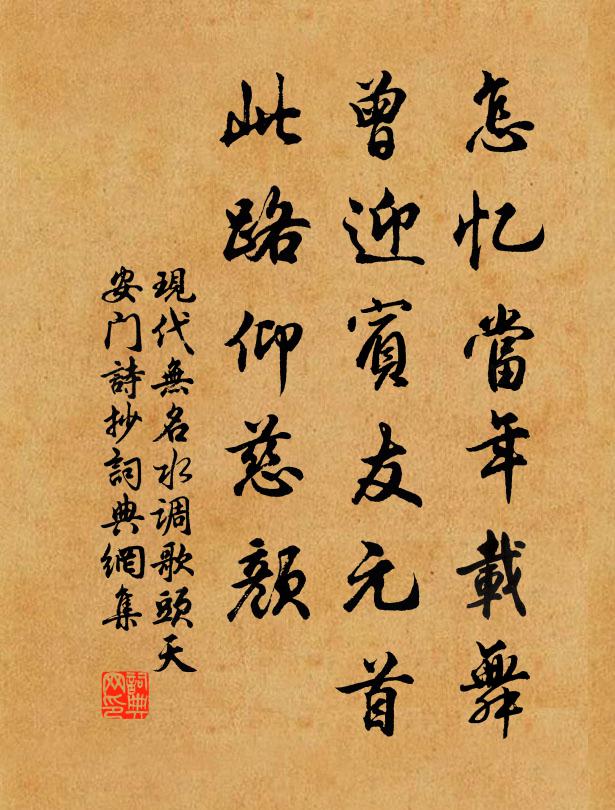 怎忆當年載舞
曾迎賓友元首
此路仰慈顏
現代無名水调歌頭天
安门詩抄詞典網集
詞典网印